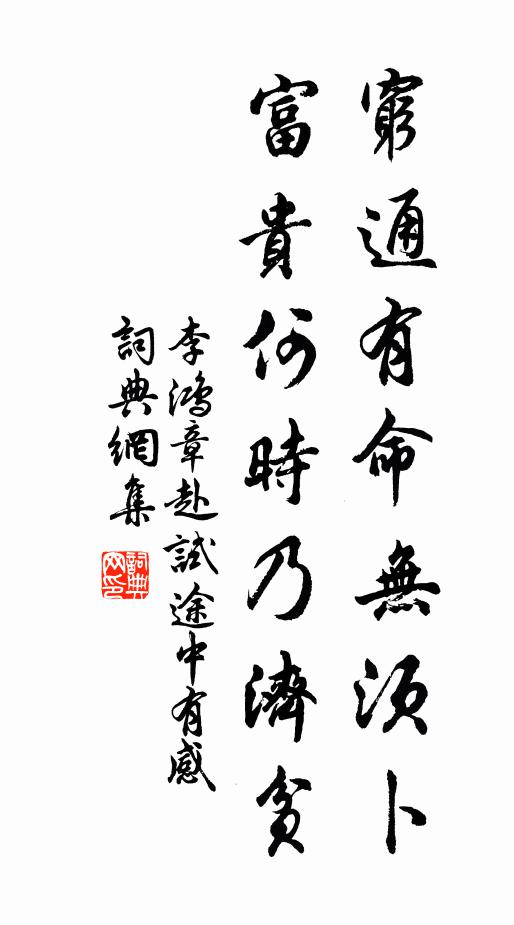 窮通有命無須卜
富貴何時乃濟貧
李鴻章赴試途中有感
詞典網集
詞典網印